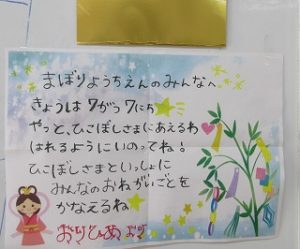 まぼりようちえんのみんなへ
きょうは7がつ7にち
やっと、ひこぼしさまにあえるわ
はれるようにいのってね!
ひこぼしさまといっしょに
みんなのおねがいごとを
かなえるね
おりひめより